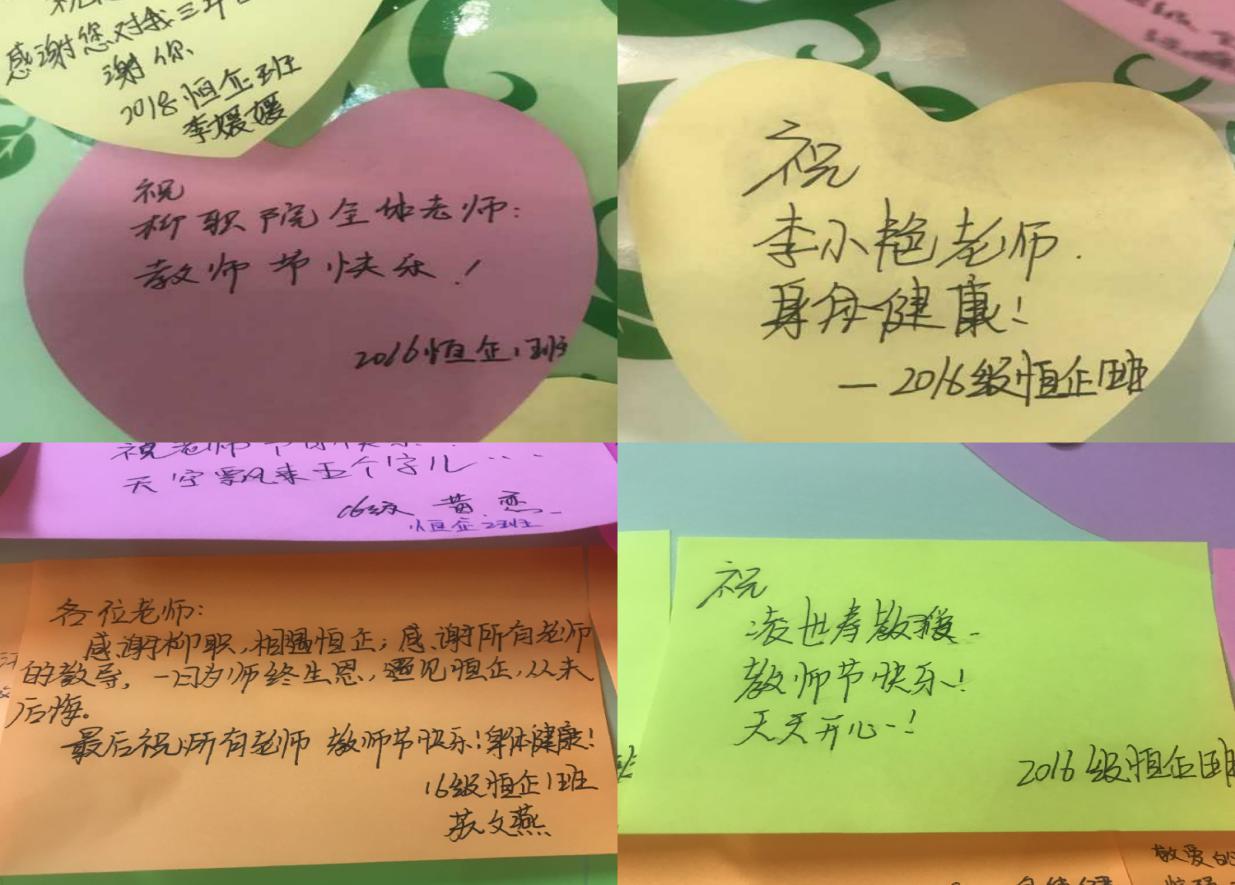 感谢您对我三年
谢你
2018恒企班
李媛媛
祝
柳职院全体老师:
教师节快乐!
2016恒企1班
祝
李小艳老师.
身体健康!
—2016级恒企1班
天空飘来五个字儿...
16级 黄恋
恒企2班
各位老师:
感谢柳职,相遇恒企;感谢所有老师
的教导,一日为师终生恩,遇见恒企,从未
后悔。
最后祝所有老师 教师节快乐!身体健康!
16级恒企1班
苏文燕
祝
凌世寿教授
教师节快乐!
天天开心!
2016级恒企1班
敬爱的